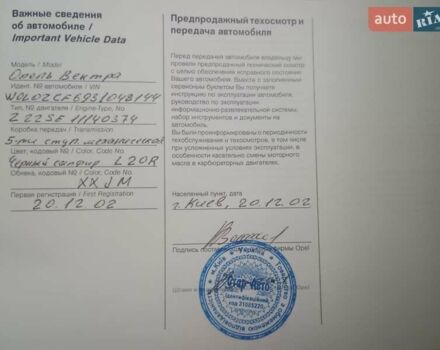 auto RIA
Важные сведения
об автомобиле /
Important Vehicle Data
Модель / Model
Опель Вектра
Идент. N2 автомобиля / VIN
W0L0ZCF6931048144
Тип, N2 двигателя / Engine-Type, No
Z22SE 11140374
Коробка передач / Transmission
5-ти ступ. механическая
Цвет, кодовый N2 / Color, Code No.
Чёрный сапфир L20R
Обивка, кодовый N2 / Color, Code No.
XXJM
Первая регистрация / First Registration
20.12.02
Предпродажный техосмотр и
передача автомобиля
Перед передачей автомобиля владельцу мы
провели предпродажный технический осмотр
с целью обеспечения исправного состояния
Вашего автомобиля. Вместе с заполненным
сервисным буклетом Вы получаете
инструкцию по эксплуатации автомобиля,
руководство по эксплуатации
информационно-развлекательной системы,
набор инструментов и документы на
автомобиль.
Вы были проинформированы о периодичности
техобслуживания и техосмотров, в том числе
при усложненных условиях эксплуатации, а в
особенности касательно смены моторного
масла в карбюраторных двигателях.
Населенный пункт, дата
г. Киев, 20.12.02
Подпись фирмы Opel
Штамп
м. Київ * Україна
"Стар-Авто"
Ідентифікаційний
код 31085220